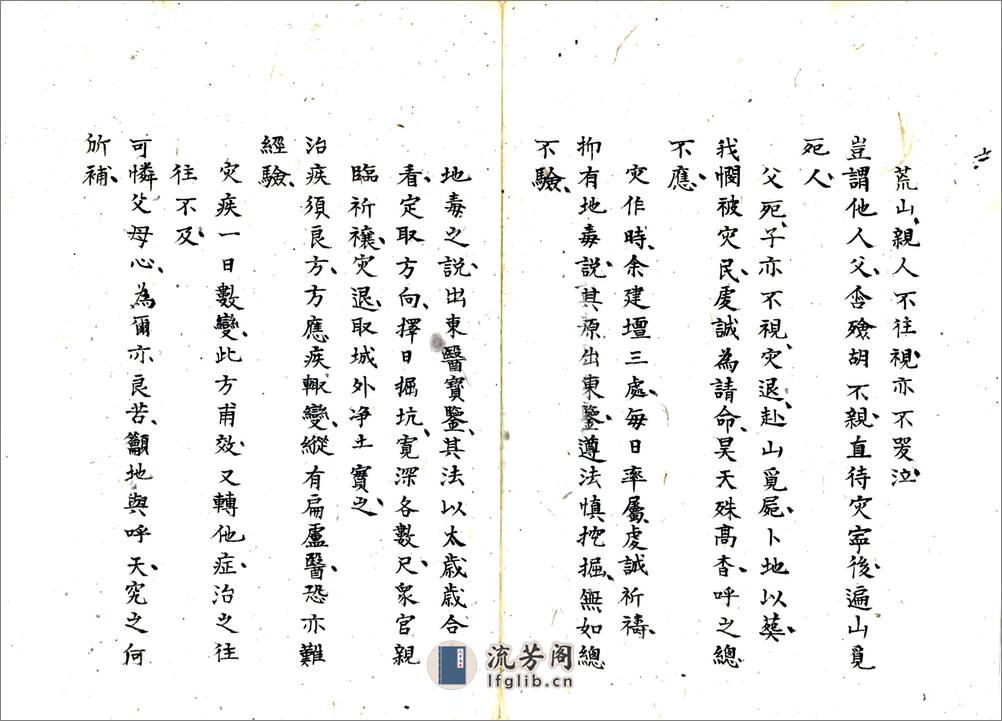 六
荒山、親人不往視、亦不哭泣
豈謂他人父、否殮胡不親、直待灾寧後、遍山覓
死人、
父死、子亦不視、灾退、赴山覓屍、卜地以葬、
我憫被灾民、虔誠為請命、昊天殊髙杳、呼之總
不應、
灾作時、余建壇三處、每日率屬虔誠祈禱、
抑有地毒説、其原出東鑒、遵法慎挖掘、無如總
不驗、
地毒之説、出東醫寳鑒、其法以太歲歲合
看、定取方向、擇日掘坑、寛深各數尺、衆官親
臨祈禳、灾退、取城外净土實之、
治疾須良方、方應疾輙變、縱有扁盧醫、恐亦難
經驗、
灾疾一日數變、此方甫效、又轉他症、治之往
往不及、
可憐父母心、為爾亦良苦、籲地與呼天、究之何
所補、
流芳阁
lfglib.cn